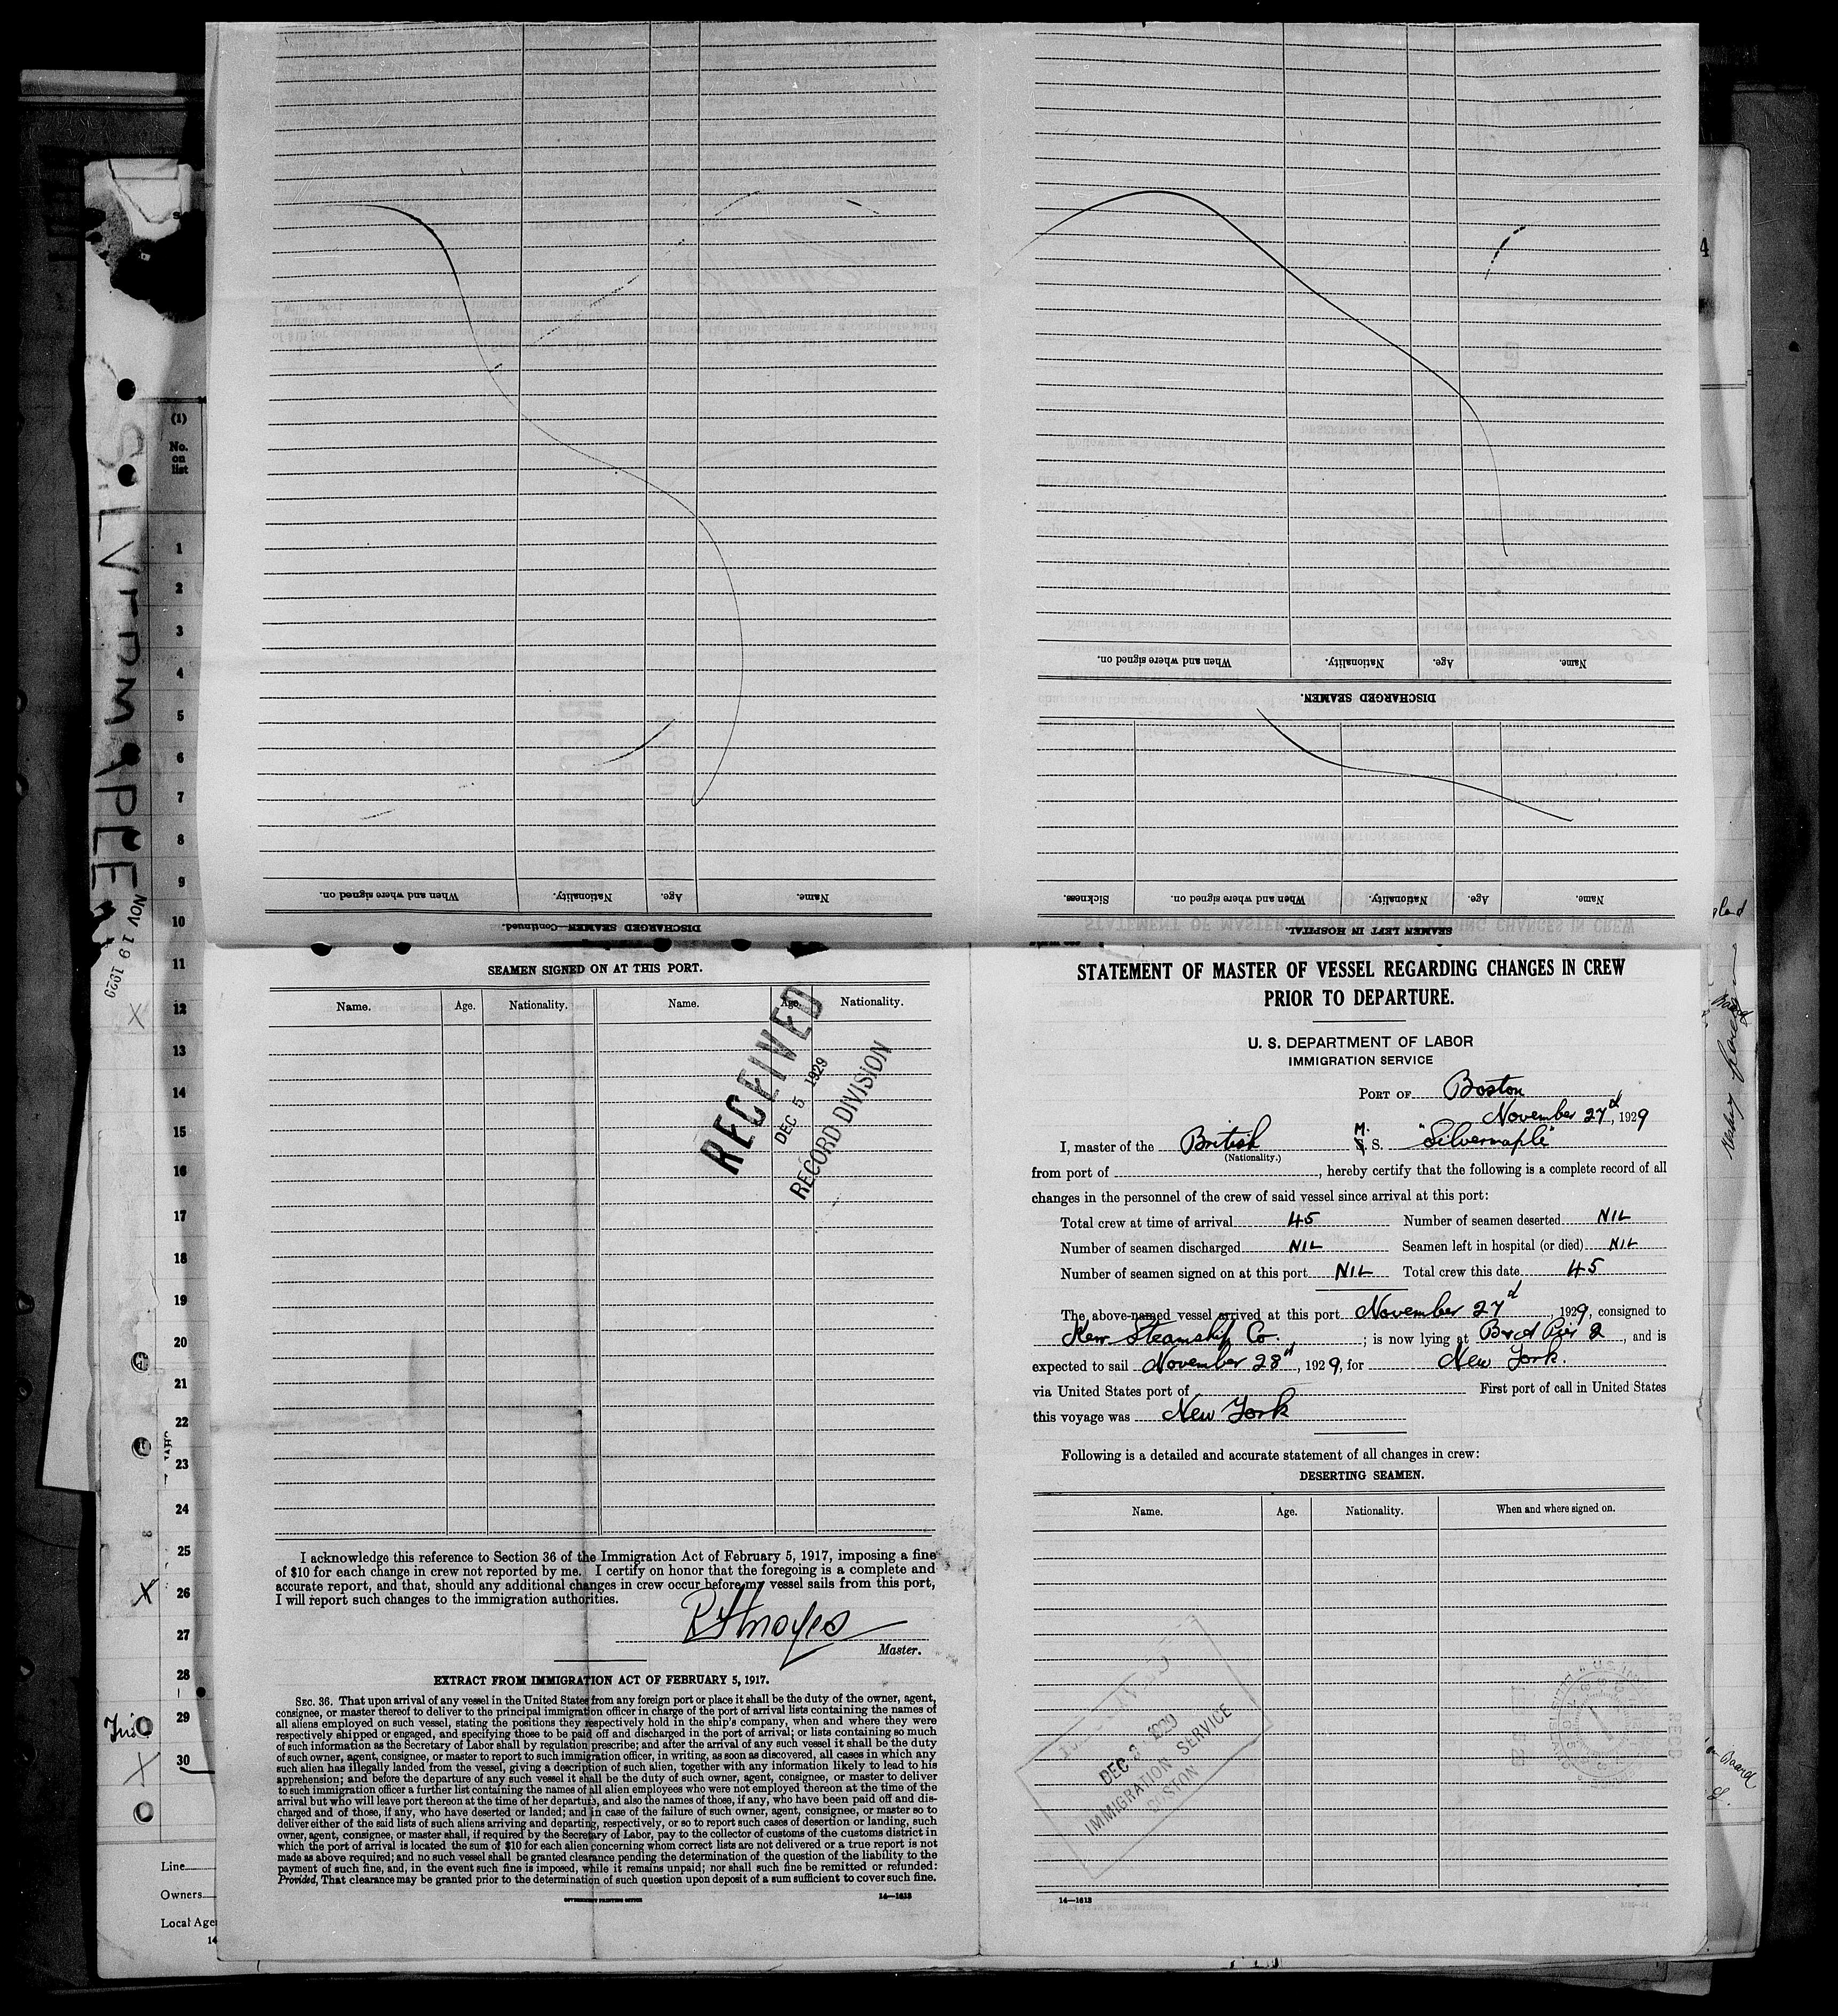 SEAMEN SIGNED ON AT THIS PORT.
Name. Age. Nationality. Name. Age. Nationality.
RECEIVED
DEC 5 1929
RECORD DIVISION
I acknowledge this reference to Section 36 of the Immigration Act of February 5, 1917, imposing a fine
of $10 for each change in crew not reported by me. I certify on honor that the foregoing is a complete and
accurate report, and that, should any additional changes in crew occur before my vessel sails from this port,
I will report such changes to the immigration authorities.
Master.
EXTRACT FROM IMMIGRATION ACT OF FEBRUARY 5, 1917.
SEC. 36. That upon arrival of any vessel in the United States from any foreign port or place it shall be the duty of the owner, agent,
consignee, or master thereof to deliver to the principal immigration officer in charge of the port of arrival lists containing the names of
all aliens employed on such vessel, stating the positions they respectively hold in the ship's company, when and where they were
respectively shipped or engaged, and specifying those to be paid off and discharged in the port of arrival; or lists containing so much
of such information as the Secretary of Labor shall by regulation prescribe; and after the arrival of any such vessel it shall be the duty
of such owner, agent, consignee, or master to report to such immigration officer, in writing, as soon as discovered, all cases in which any
such alien has illegally landed from the vessel, giving a description of such alien, together with any information likely to lead to his
apprehension; and before the departure of any such vessel it shall be the duty of such owner, agent, consignee, or master to deliver
to such immigration officer a further list containing the names of all alien employees who were not employed thereon at the time of the
arrival but who will leave port thereon at the time of her departure, and also the names of those, if any, who have been paid off and dis-
charged and of those, if any, who have deserted or landed; and in case of the failure of such owner, agent, consignee, or master so to
deliver either of the said lists of such aliens arriving and departing, respectively, or so to report such cases of desertion or landing, such
owner, agent, consignee, or master shall, if required by the Secretary of Labor, pay to the collector of customs of the customs district in
which the port of arrival is located the sum of $10 for each alien concerning whom correct lists are not delivered or a true report is not
made as above required; and no such vessel shall be granted clearance pending the determination of the question of the liability to the
payment of such fine, and, in the event such fine is imposed, while it remains unpaid; nor shall such fine be remitted or refunded:
Provided, That clearance may be granted prior to the determination of such question upon deposit of a sum sufficient to cover such fine.
GOVERNMENT PRINTING OFFICE 14—1613
STATEMENT OF MASTER OF VESSEL REGARDING CHANGES IN CREW
PRIOR TO DEPARTURE.
U. S. DEPARTMENT OF LABOR
IMMIGRATION SERVICE
PORT OF Boston
November 27d, 1929
I, master of the British M. S. "Silvermaple"
(Nationality.)
from port of , hereby certify that the following is a complete record of all
changes in the personnel of the crew of said vessel since arrival at this port:
Total crew at time of arrival 45 Number of seamen deserted NIL
Number of seamen discharged NIL Seamen left in hospital (or died) NIL
Number of seamen signed on at this port NIL Total crew this date 45
The above-named vessel arrived at this port November 27d, 1929, consigned to
Kerr Steamship Co. ; is now lying at B and A Pier 2, and is
expected to sail November 28d, 1929, for New York.
via United States port of First port of call in United States
this voyage was New York
Following is a detailed and accurate statement of all changes in crew:
DESERTING SEAMEN.
Name. Age. Nationality. When and where signed on.
DEC 3 1929
IMMIGRATION SERVICE
BOSTON
14—1613
DISCHARGED SEAMEN—Continued.
Name. Age. Nationality. When and where signed on.
SEAMEN LEFT IN HOSPITAL.
Name. Age. Nationality. When and where signed on. Sickness.
DISCHARGED SEAMEN.
Name. Age. Nationality. When and where signed on.
SILVERMAPLE
NOV 19 1929
(1)
No.
on
list
1
2
3
4
5
6
7
8
9
10
11
12
13
14
15
16
17
18
19
20
21
22
23
24
25
26
27
28
29
30
Line
Owners
Local Age
14
4